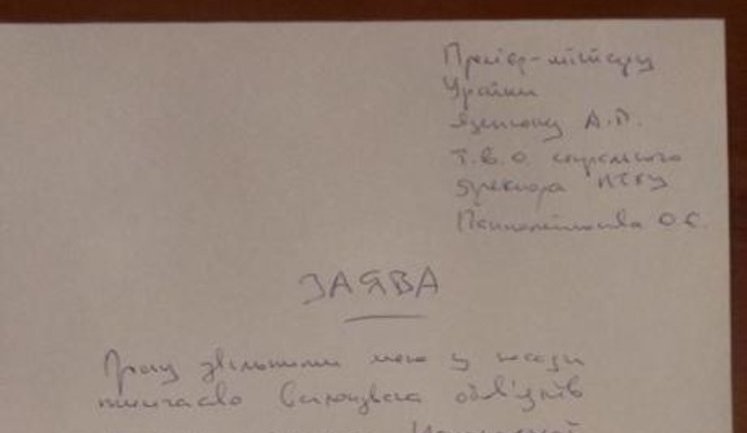 Прем'єр-міністру
України
Яценюку А.П.
Т.В.О. генерального
директора НТКУ
Пантелеймонова О.Є.
ЗАЯВА
Прошу звільнити мене з посади
тимчасово виконувача обов'язків